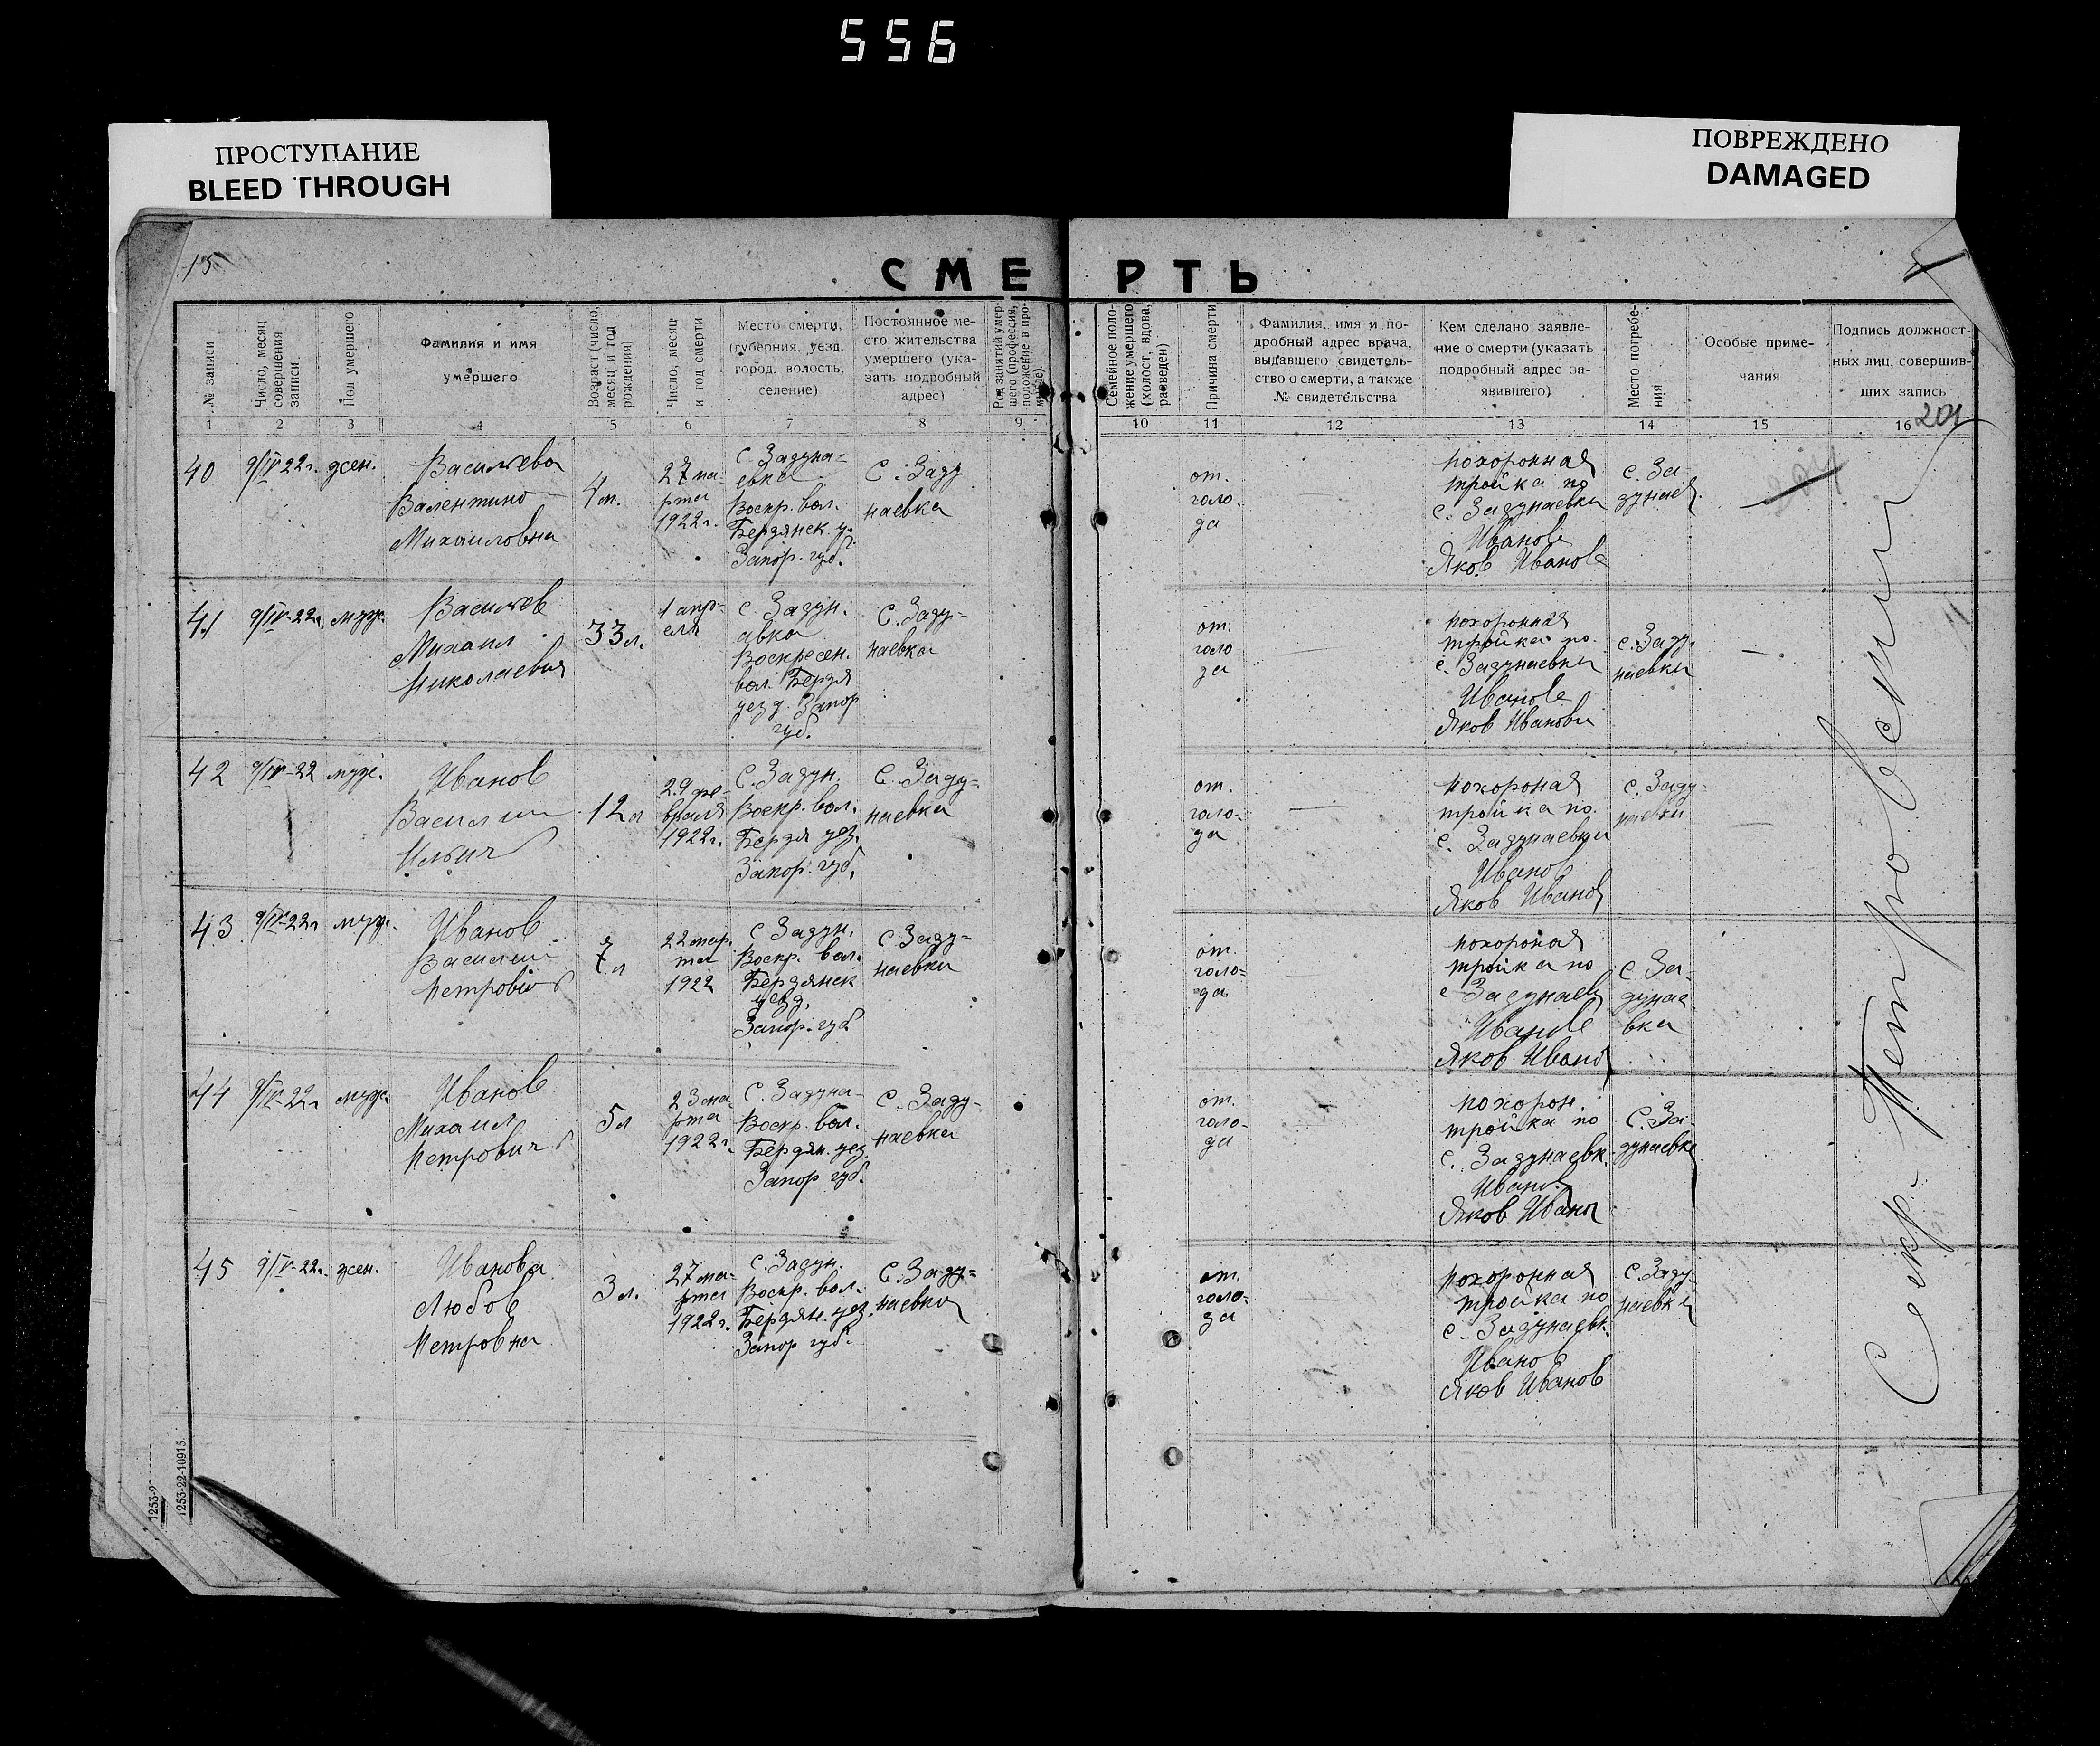 556
ПРОСТУПАНИЕ
BLEED THROUGH
ПОВРЕЖДЕНО
DAMAGED
15
СМЕРТЬ
№ записи
Число, месяц
совершения
записи
Пол умершего
Фамилия и имя
умершего
Возраст (число,
месяц и год
рождения)
Число, месяц
и год смерти
Место смерти,
(губерния, уезд,
город, волость,
селение)
Постоянное ме-
сто жительства
умершего (ука-
зать подробный
адрес)
Род занятий умер-
шего (профессия,
положение в про-
Семейное поло-
жение умершего
(холост, вдова,
разведен)
Причина смерти
Фамилия, имя и по-
дробный адрес врача,
выдавшего свидетель-
ство о смерти, а также
№ свидетельства
Кем сделано заявле-
ние о смерти (указать
подробный адрес за-
явившего)
Место погребе-
ния
Особые приме-
чания
Подпись должност-
ных лиц, совершив-
ших запись
1 2 3 4 5 6 7 8 9 10 11 12 13 14 15 16
201
40
9/IV 22г.
жен.
Васильева
Валентина
Михайловна
4 м.
27 ма-
рта
1922г.
С Задуна=
евка
Воскр. вол.
Бердянск. у.
Запор. губ.
С. Заду
наевка
от.
голо
да
похоронная
тройка по
с. Задунаевки
Иванов
Яков Иванов
с. За-
дунаев.
41
9/IV-22г.
муж.
Васильев
Михаил
Николаевич
33 л.
1 апр-
еля
с. Задун.
авка
Воскресен.
вол. Бердя
уезд. Запор
губ.
С. Заду-
наевка
от.
голо
да
похоронная
тройка по.
с. Задунаевки
Иванов
Яков Иванов
с. Заду-
наевки
42
9/IV-22
муж.
Иванов
Василий
Ильич
12 л
29 фе-
враля
1922г.
С. Задун.
Воскр. вол.
Бердя уез.
Запор. губ.
С. Заду-
наевка
от.
голо-
да
похороная
тройка по.
с. Задунаевки
Иванов
Яков Иванов
с. Заду-
наевки
43
9/IV-22г
муж.
Иванов
Василий
Петрович
7 л
22 мар.
та
1922
С Задун.
Воскр. вол.
Бердянск
уезд.
Запор. губ
С Заду=
наевки
от.
голо=
да.
похороная
тройка по
с Задунаев
Иванов
Яков Иванов
с За-
дунае
вка
44
9/IV-22г
муж.
Иванов
Михаил
Петрович
5 л
23 ма
рта
1922г.
С. Задуна-
Воскр. вол.
Бердян. уез
Запор губ.
С. Заду-
наевка
от.
голо-
да
похорон.
тройка по
с. Задунаевк.
Иванов
Яков Иванов
С. За-
дунаевке
45
9/IV-22г.
жен.
Иванова
Любов
Петровна
3 л.
27 ма-
рта
1922г.
с. Задун.
Воскр. вол.
Бердян. уез.
Запор губ.
С. Заду=
наевка
от.
голо-
да
похоронная
тройка по
с. Задунаевк.
Иванов
Яков Иванов
С. Заду-
наевки
Секр. Петровский
1253-22-10915